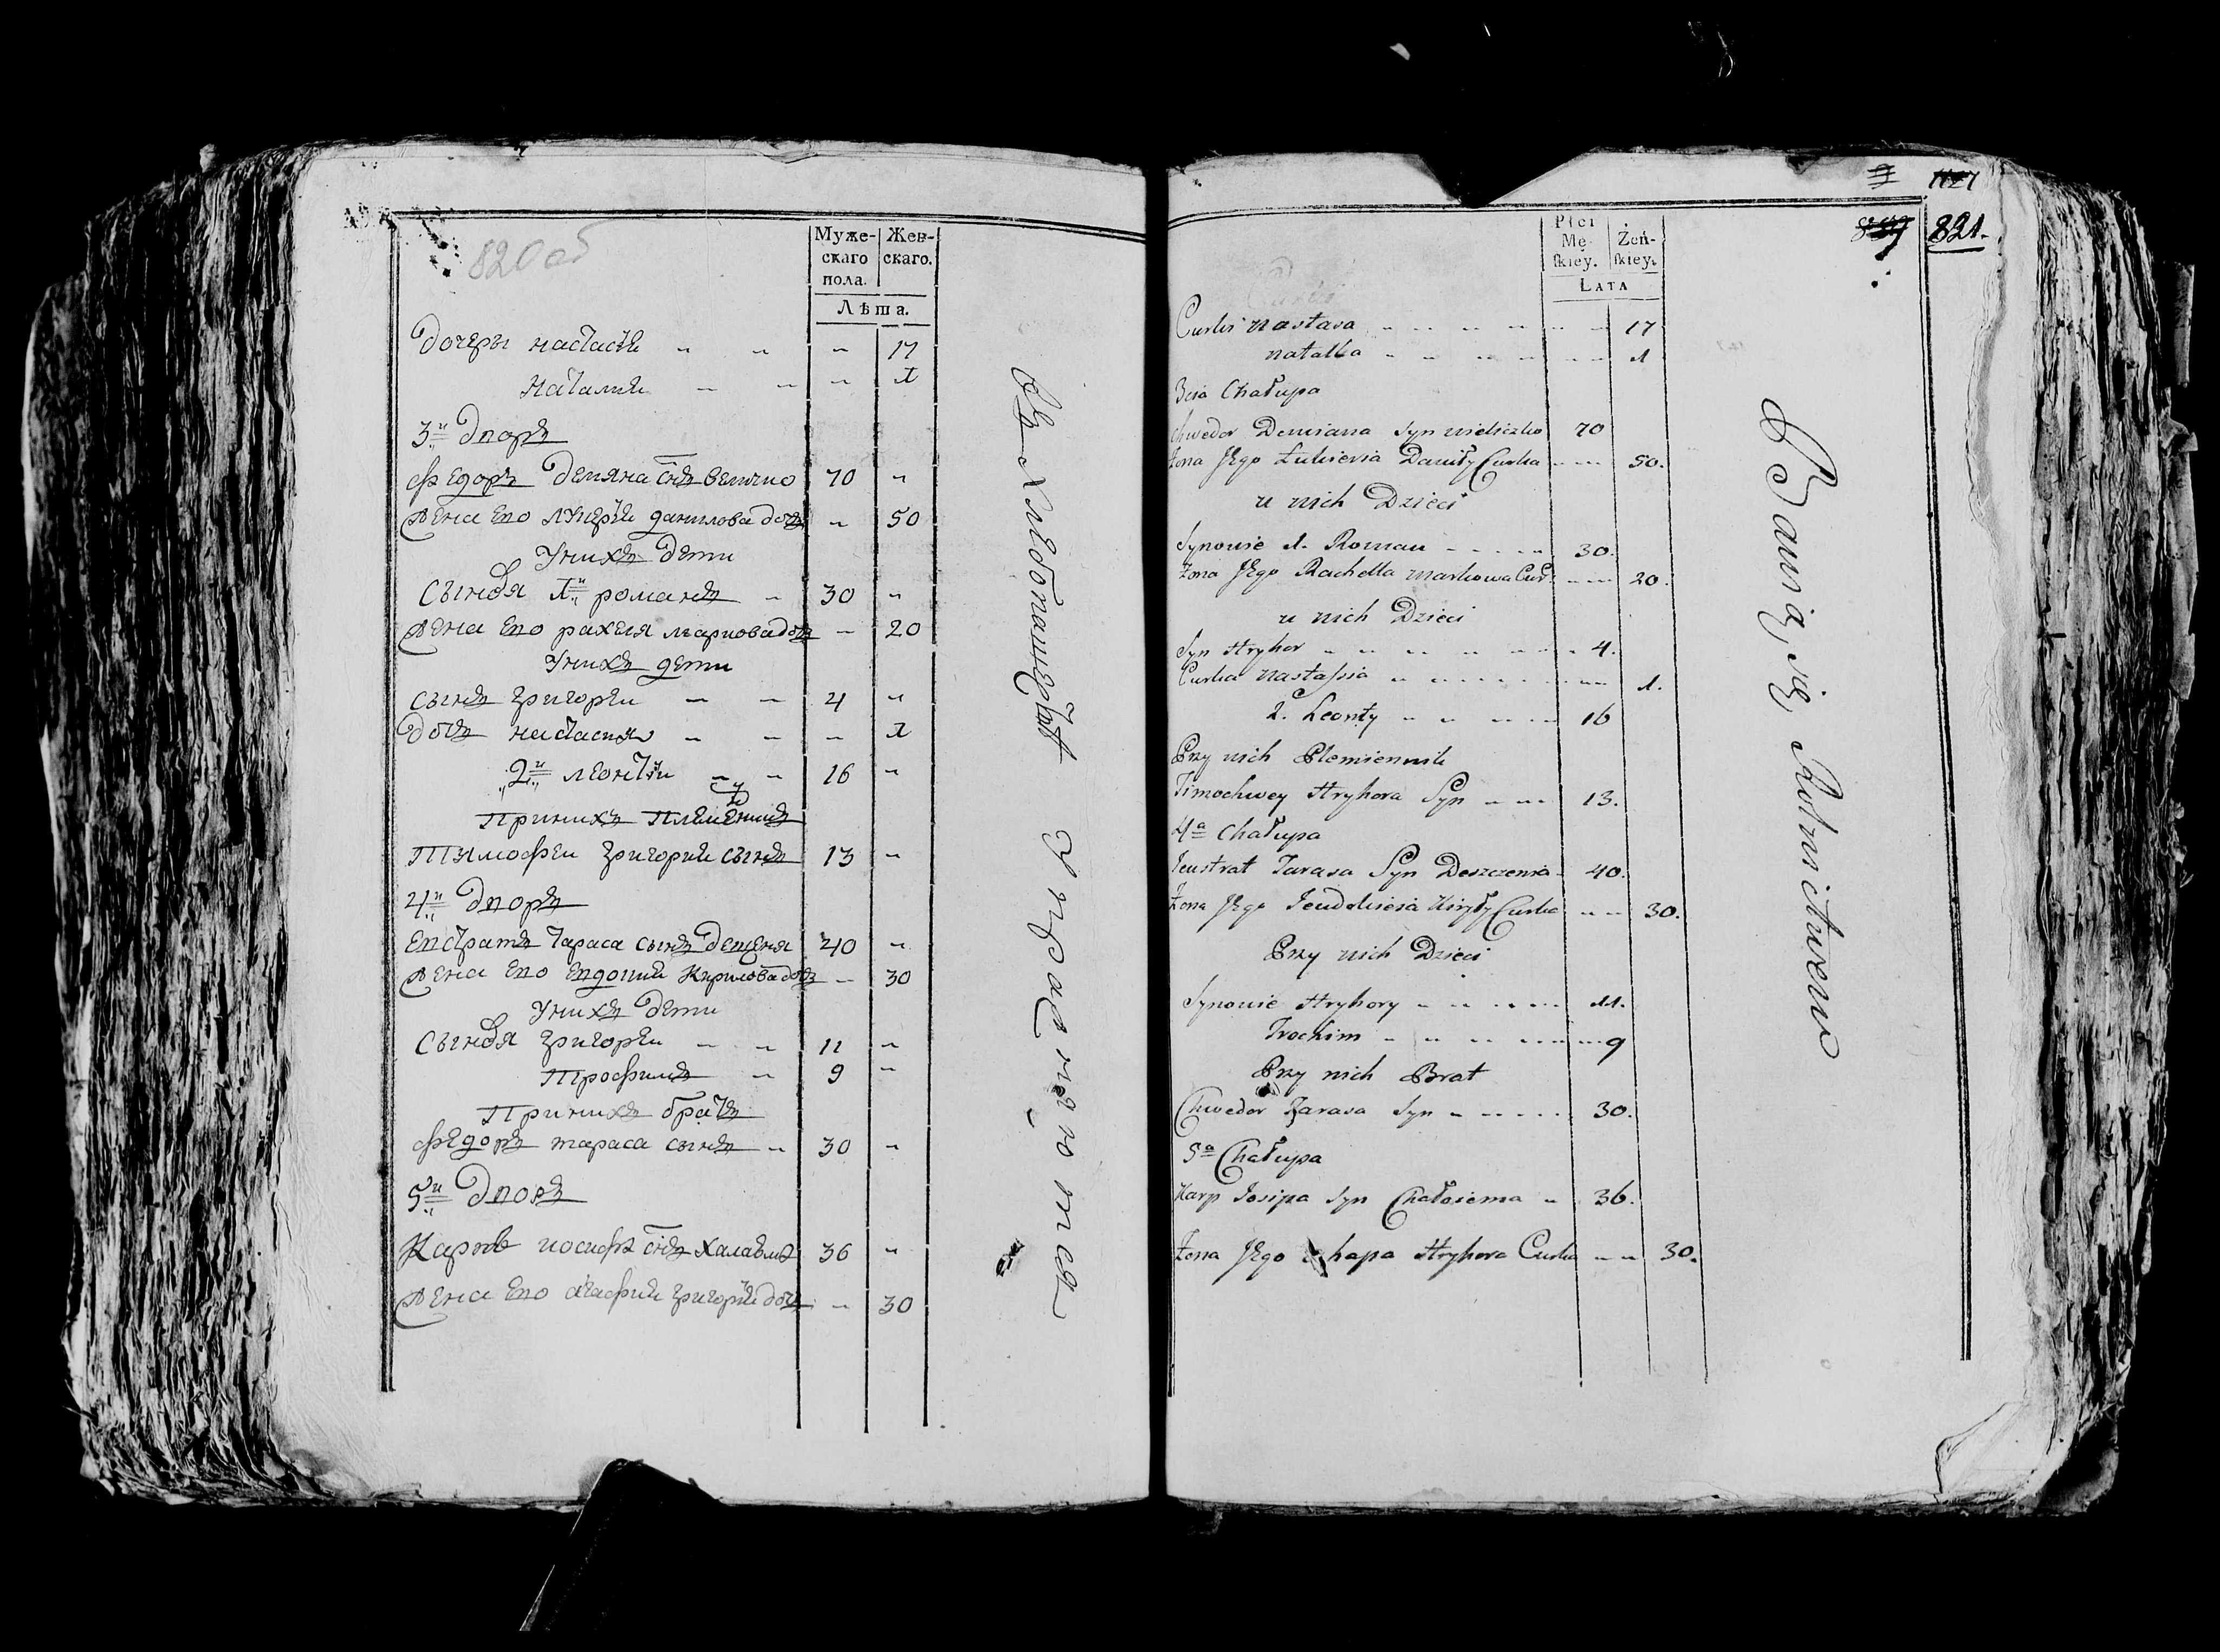 820 об
Муже-
скаго
пола.
Жен-
скаго.
Лѣта.
Дочеры настасія " " " 17
Наталия " " " 1
3й дворъ
Федоръ демяна снъ величко 70 "
Жена Его лукерія данилова дочь " 50
У нихъ дети
Сыновя 1й романъ " 30 "
Жена Его рахеля маркова дочь " 20
У нихъ дети
сынъ григореи " " 4 "
дочь настасия " " " 1
2й леонтіи " " 16 "
При нихъ племеникъ
Тимофеи григория сынъ 13 "
4й дворъ
Евстратъ тараса сынъ дещеня 40 "
Жена Его Евдокия Кирилова дочь " 30
У нихъ дети
Сыновя григореи " " 11 "
Трофимъ " 9 "
При нихъ братъ
Федоръ тараса сынъ " 30 "
5й дворъ
Карпъ иосифа снъ 36 "
Жена Его агафия григория дочь " 30
821.
Płci
Mę-
skiey.
Żeń-
skiey.
LATA
Curki Nastasa 17
Natalka 1
3cia Chałupa
Chwedor Demiana Syn Wieliczko 70
Żona Jego Łukieria Daniły Curka 50.
u nich Dzieci
Synowie 1. Roman 30.
Żona Jego Rachella Markowa Cur: 20.
u nich Dzieci
Syn Hryhor 4.
Curka Nastassia 1.
2. Leonty 16
Przy nich Plemiennik
Timochwey Hryhora Syn 13.
4a Chałupa
Jeustrat Tarasa Syn Deszczenia 40.
Żona Jego Jeudokieia Kiryły Curka 30.
Przy nich Dzieci
Synowie Hryhory 11.
Trochim 9
Przy nich Brat
Chwedor Tarasa Syn 30.
5a Chałupa
Karp Josipa Syn 36.
Żona Jego hapa Hryhora Curka 30.